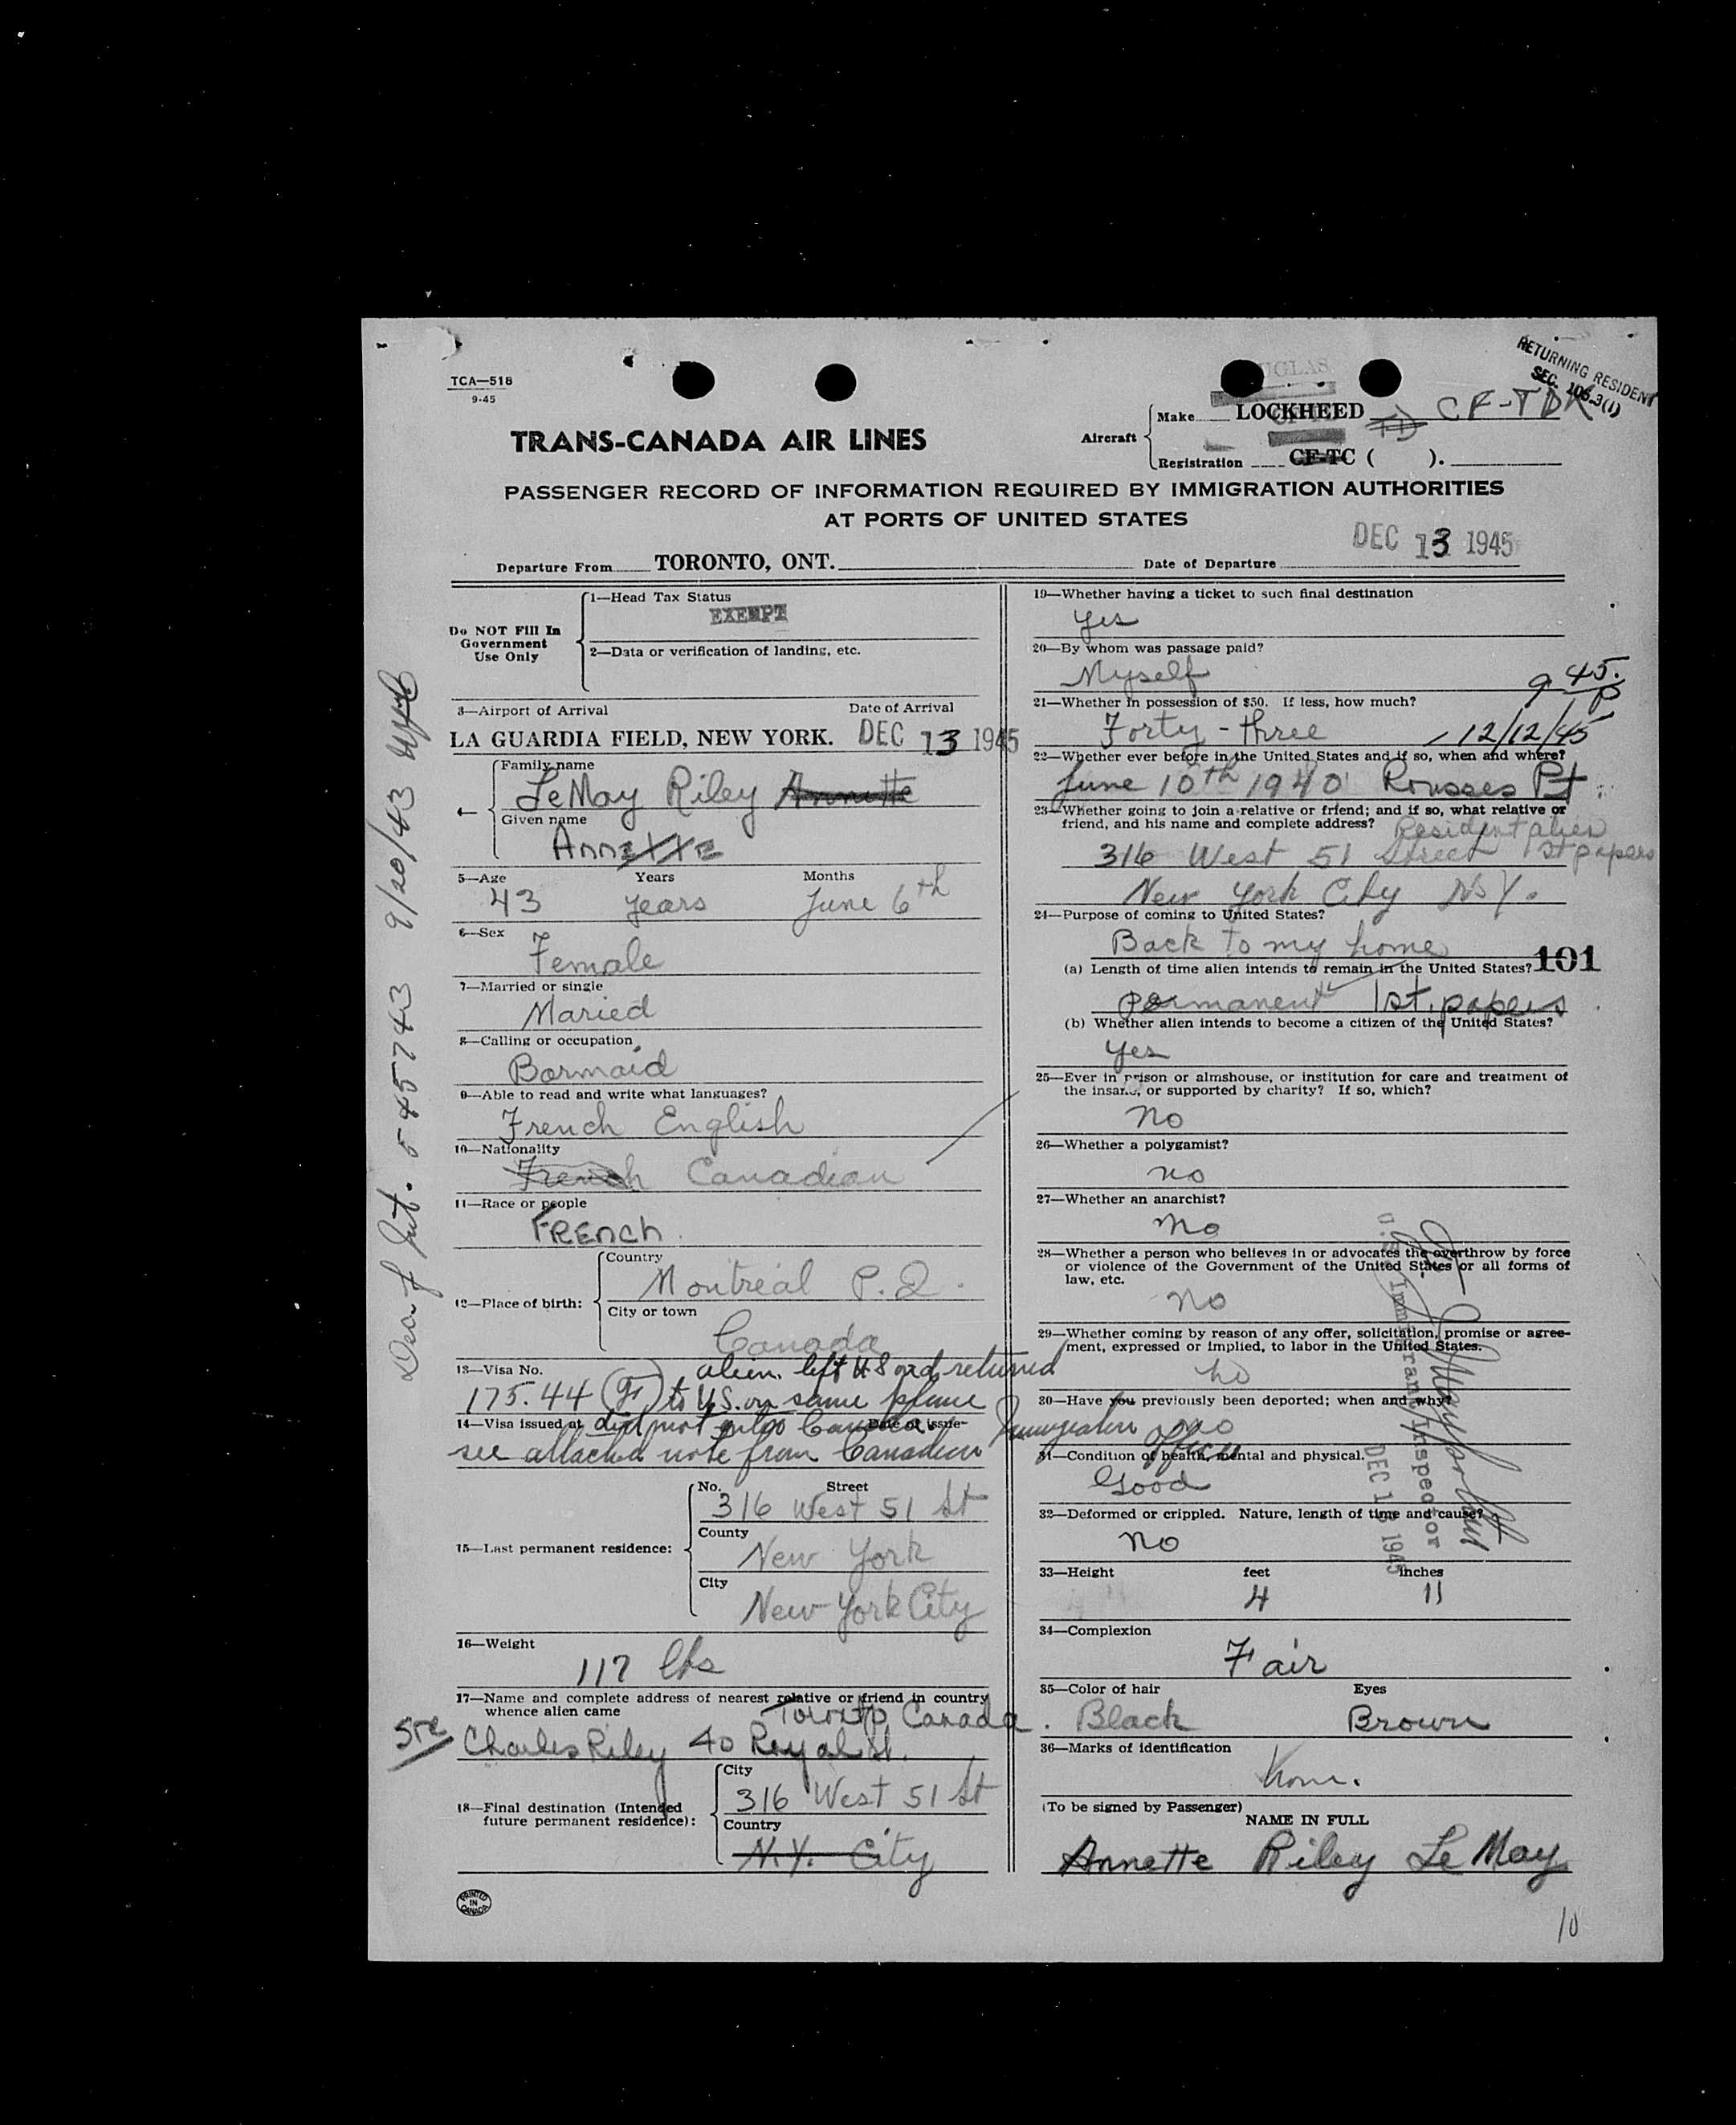 TCA—518
9-45
RETURNING RESIDENT
SEC. 105.3(1)
TRANS-CANADA AIR LINES
Aircraft
Make LOCKHEED CF-TDK
Registration CF-TC ( ).
PASSENGER RECORD OF INFORMATION REQUIRED BY IMMIGRATION AUTHORITIES
AT PORTS OF UNITED STATES
Departure From TORONTO, ONT.
Date of Departure DEC 13 1945
Do NOT Fill In
Government
Use Only
1—Head Tax Status
EXEMPT
2—Data or verification of landing, etc.
3—Airport of Arrival Date of Arrival
LA GUARDIA FIELD, NEW YORK. DEC 13 1945
Family name
LeMay Riley Annette
Given name
Annette
5—Age Years Months
43 years June 6th
6—Sex
Female
7—Married or single
Maried
8—Calling or occupation
Barmaid
9—Able to read and write what languages?
French English
10—Nationality
French Canadian
11—Race or people
FRENCH
12—Place of birth:
Country
Montreal P.Q.
City or town
Canada
13—Visa No. alien left US and returned
175.44 to U.S. on same plane
14—Visa issued at Date of issue
did not go into Canada.
see attached note from Canadian Immigration office
15—Last permanent residence:
No. Street
316 West 51 St
County
New York
City
New York City
16—Weight
117 lbs
17—Name and complete address of nearest relative or friend in country
whence alien came
Toronto Canada.
Charles Riley 40 Royal St.
18—Final destination (Intended
future permanent residence):
City
316 West 51 St
Country
N.Y. City
PRINTED
IN
CANADA
19—Whether having a ticket to such final destination
Yes
20—By whom was passage paid?
Myself
45.
21—Whether in possession of $50. If less, how much?
Forty-three 12/12/45
22—Whether ever before in the United States and if so, when and where?
June 10th 1940 Rousses Pt
23—Whether going to join a relative or friend; and if so, what relative or
friend, and his name and complete address?
Resident alien
316 West 51 Street 1st papers
New York City N.Y.
24—Purpose of coming to United States?
Back to my home
101
(a) Length of time alien intends to remain in the United States?
Permanent 1st. papers
(b) Whether alien intends to become a citizen of the United States?
Yes
25—Ever in prison or almshouse, or institution for care and treatment of
the insane, or supported by charity? If so, which?
No
26—Whether a polygamist?
no
27—Whether an anarchist?
no
28—Whether a person who believes in or advocates the overthrow by force
or violence of the Government of the United States or all forms of
law, etc.
no
29—Whether coming by reason of any offer, solicitation, promise or agree-
ment, expressed or implied, to labor in the United States.
no
30—Have you previously been deported; when and why?
no
31—Condition of health, mental and physical.
Good
32—Deformed or crippled. Nature, length of time and cause?
No
33—Height feet inches
4 11
34—Complexion
Fair
35—Color of hair Eyes
Black Brown
36—Marks of identification
None.
(To be signed by Passenger)
NAME IN FULL
Annette Riley Le May
10
U.S. Immigrant Inspector
DEC 13 1945
5457743 9/20/43